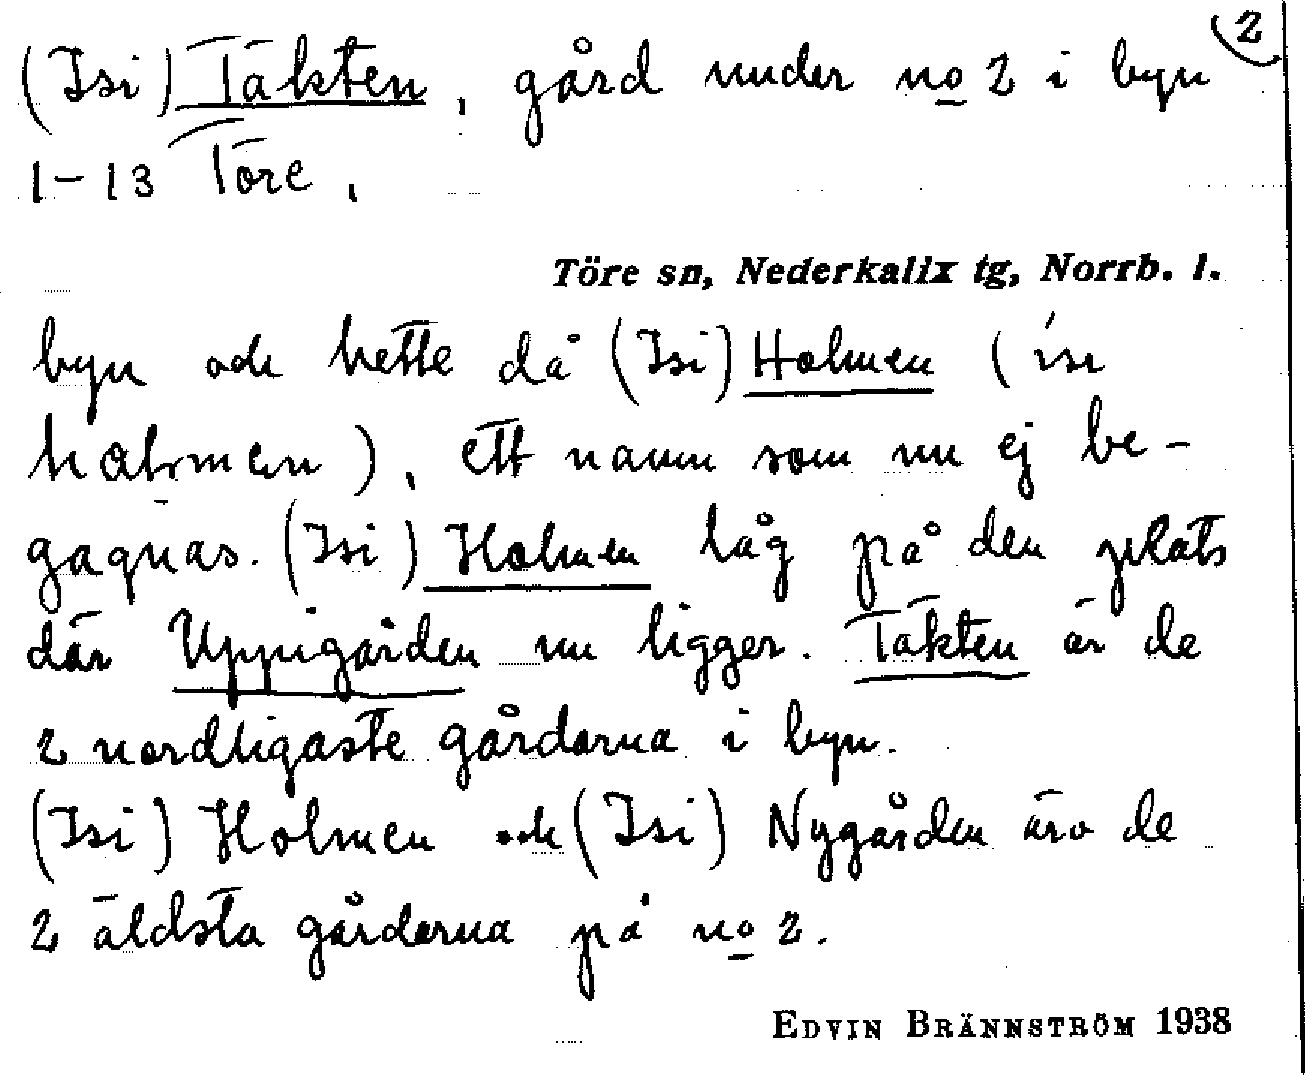 2
(Isi) Täkten, gård under no 2 i byn
1-13 Töre,
Töre sn, Nederkalix tg, Norrb. l.
byn och hette då (Isi) Holmen (
), ett namn som nu ej be-
gagnas. (Isi) Holmen låg på den plats
där Uppigården nu ligger. Täkten är de
2 nordligaste gårdarna i byn.
(Isi) Holmen och (Isi) Nygården äro de
2 äldsta gårdarna på no 2.
EDVIN BRÄNNSTRÖM 1938